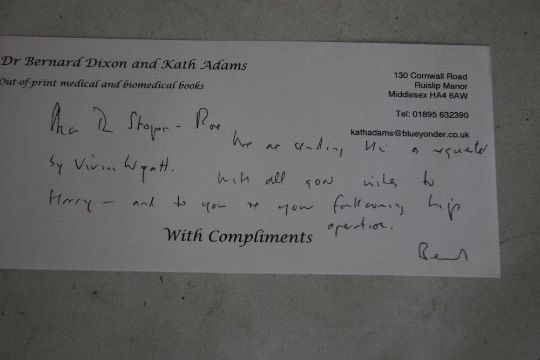 Dr Bernard Dixon and Kath Adams
Out-of-print medical and biomedical books
130 Cornwall Road
Ruislip Manor
Middlesex HA4 6AW
Tel: 01895 632390
kathadams@blueyonder.co.uk
Dr
We are sending this as requested
by Vivian Wyatt. With all good wishes to
Harry – and to you re your forthcoming hip
operation.
With Compliments
Bernard